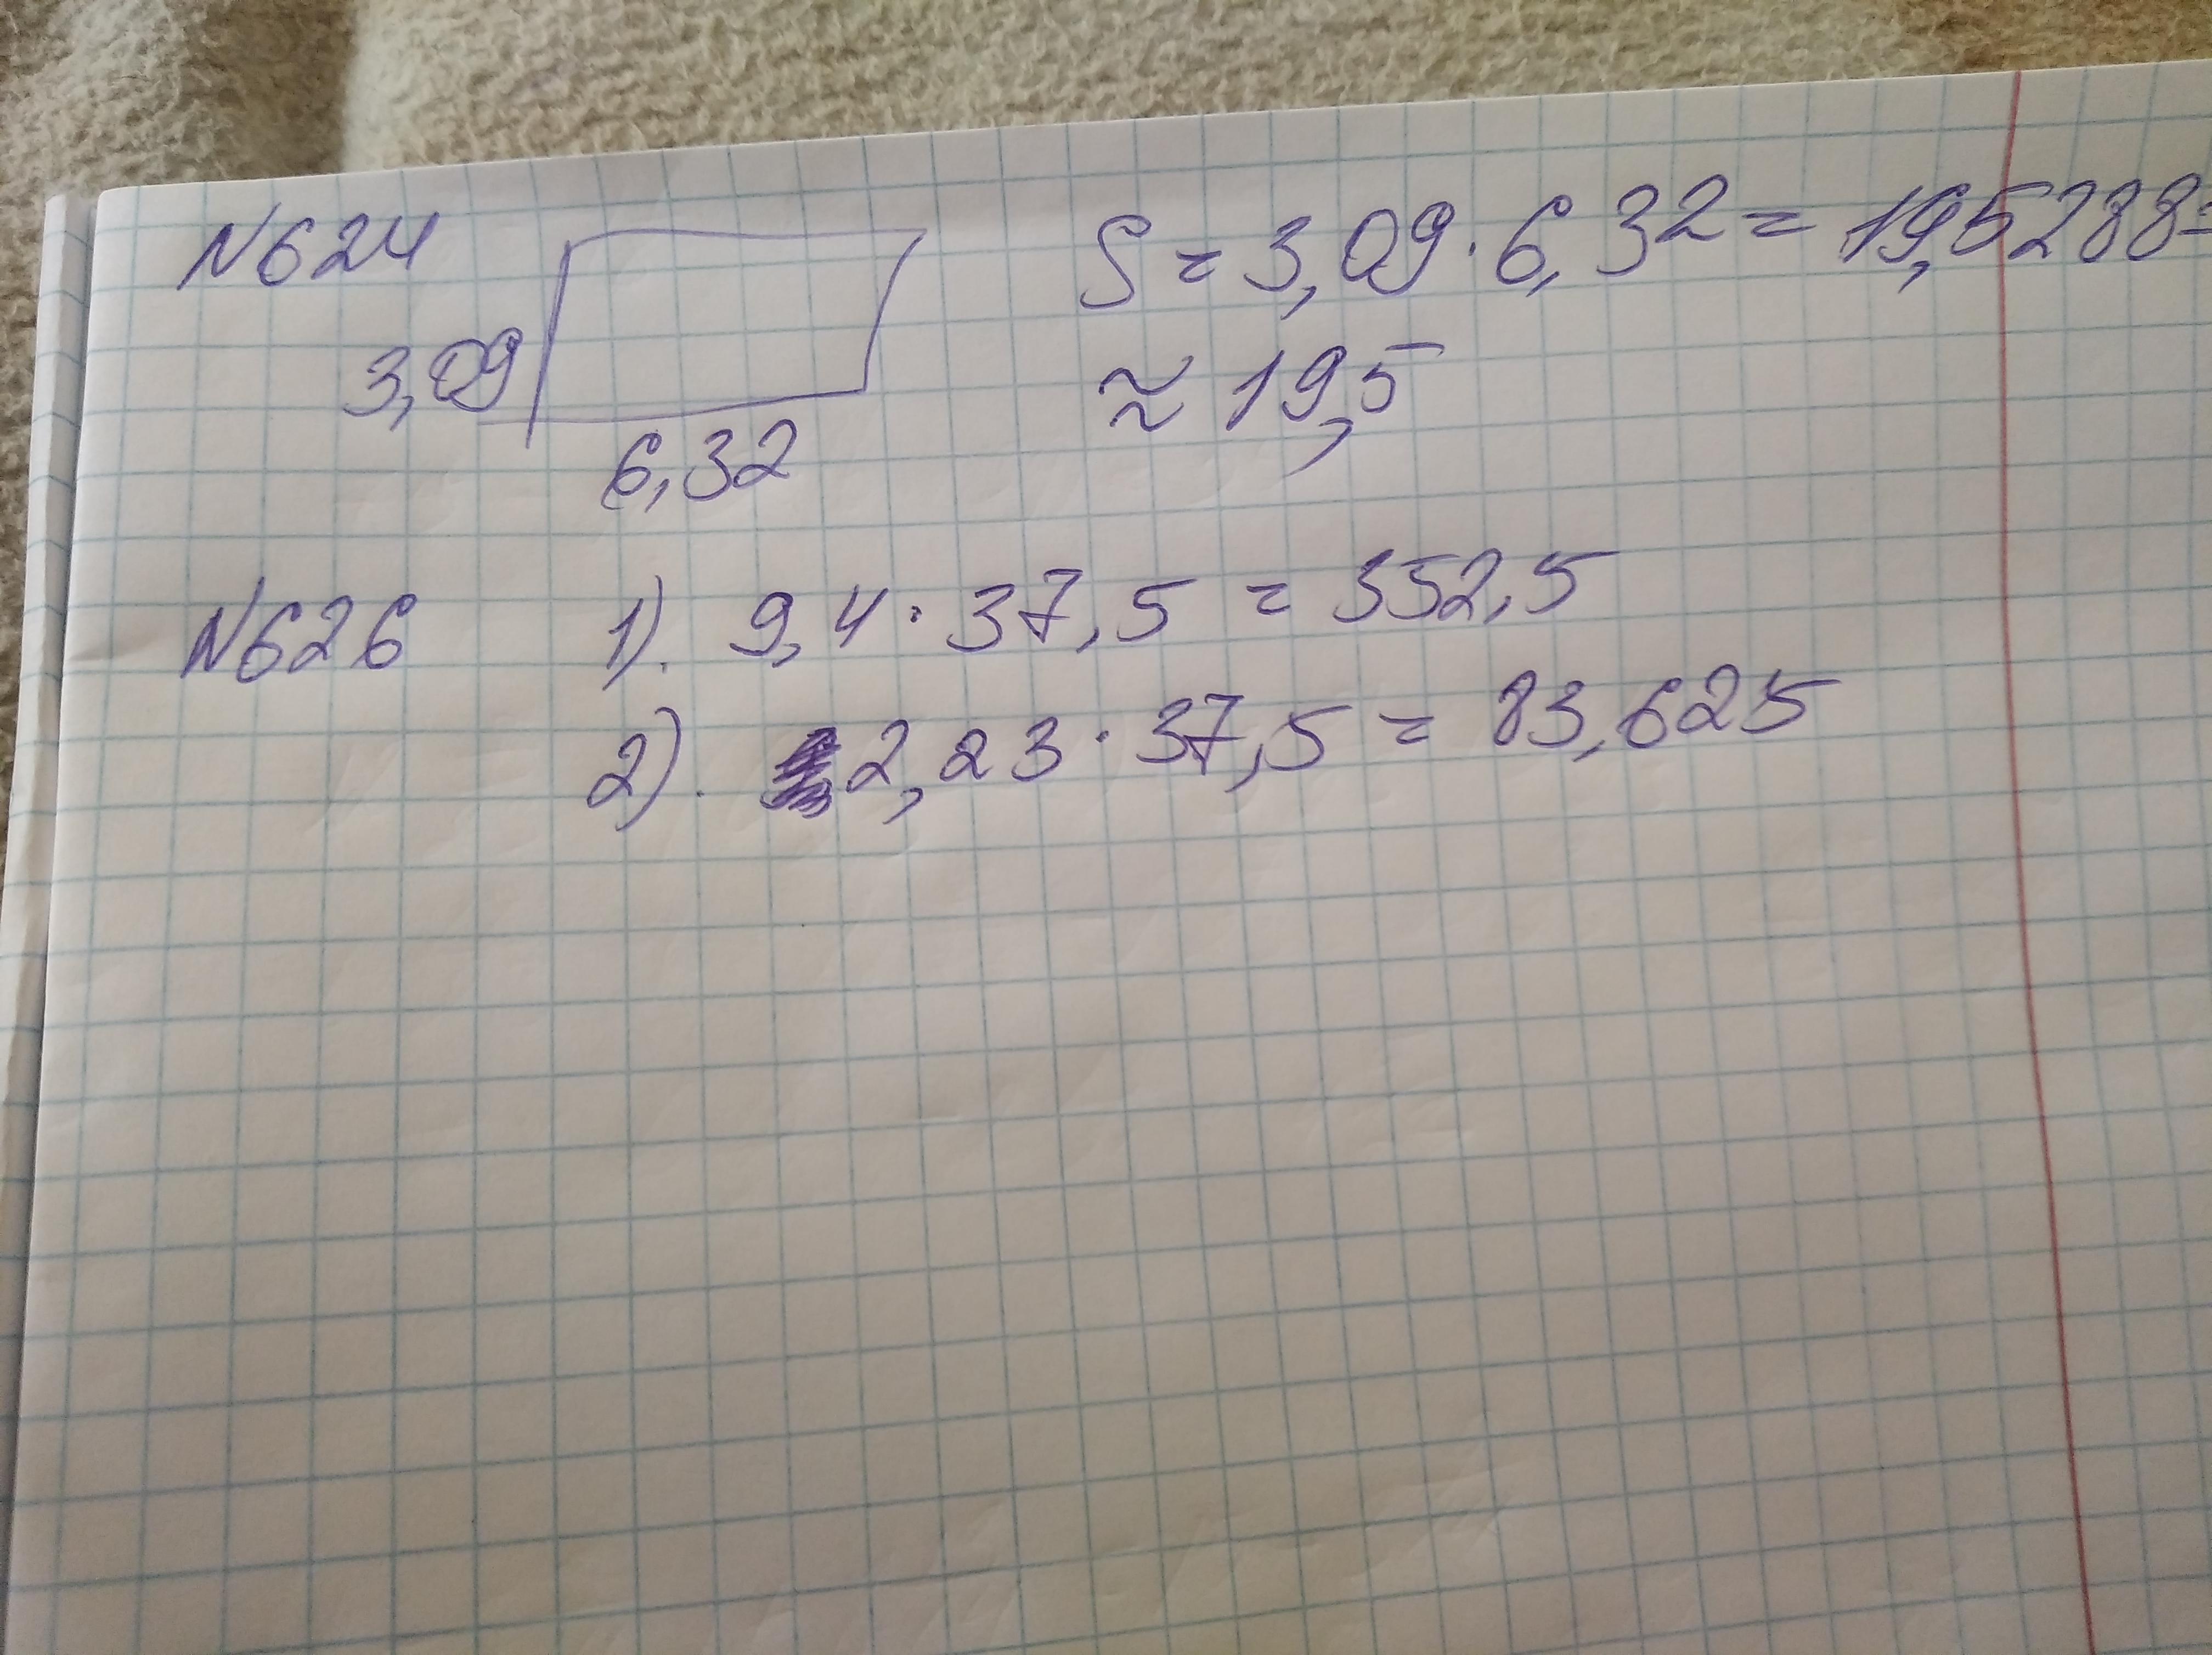 N624
3,09
6,32
S = 3,09 · 6,32 = 19,5288 =
≈ 19,5
N626 1). 9,4 · 37,5 = 352,5
2). 2,23 · 37,5 = 83,625